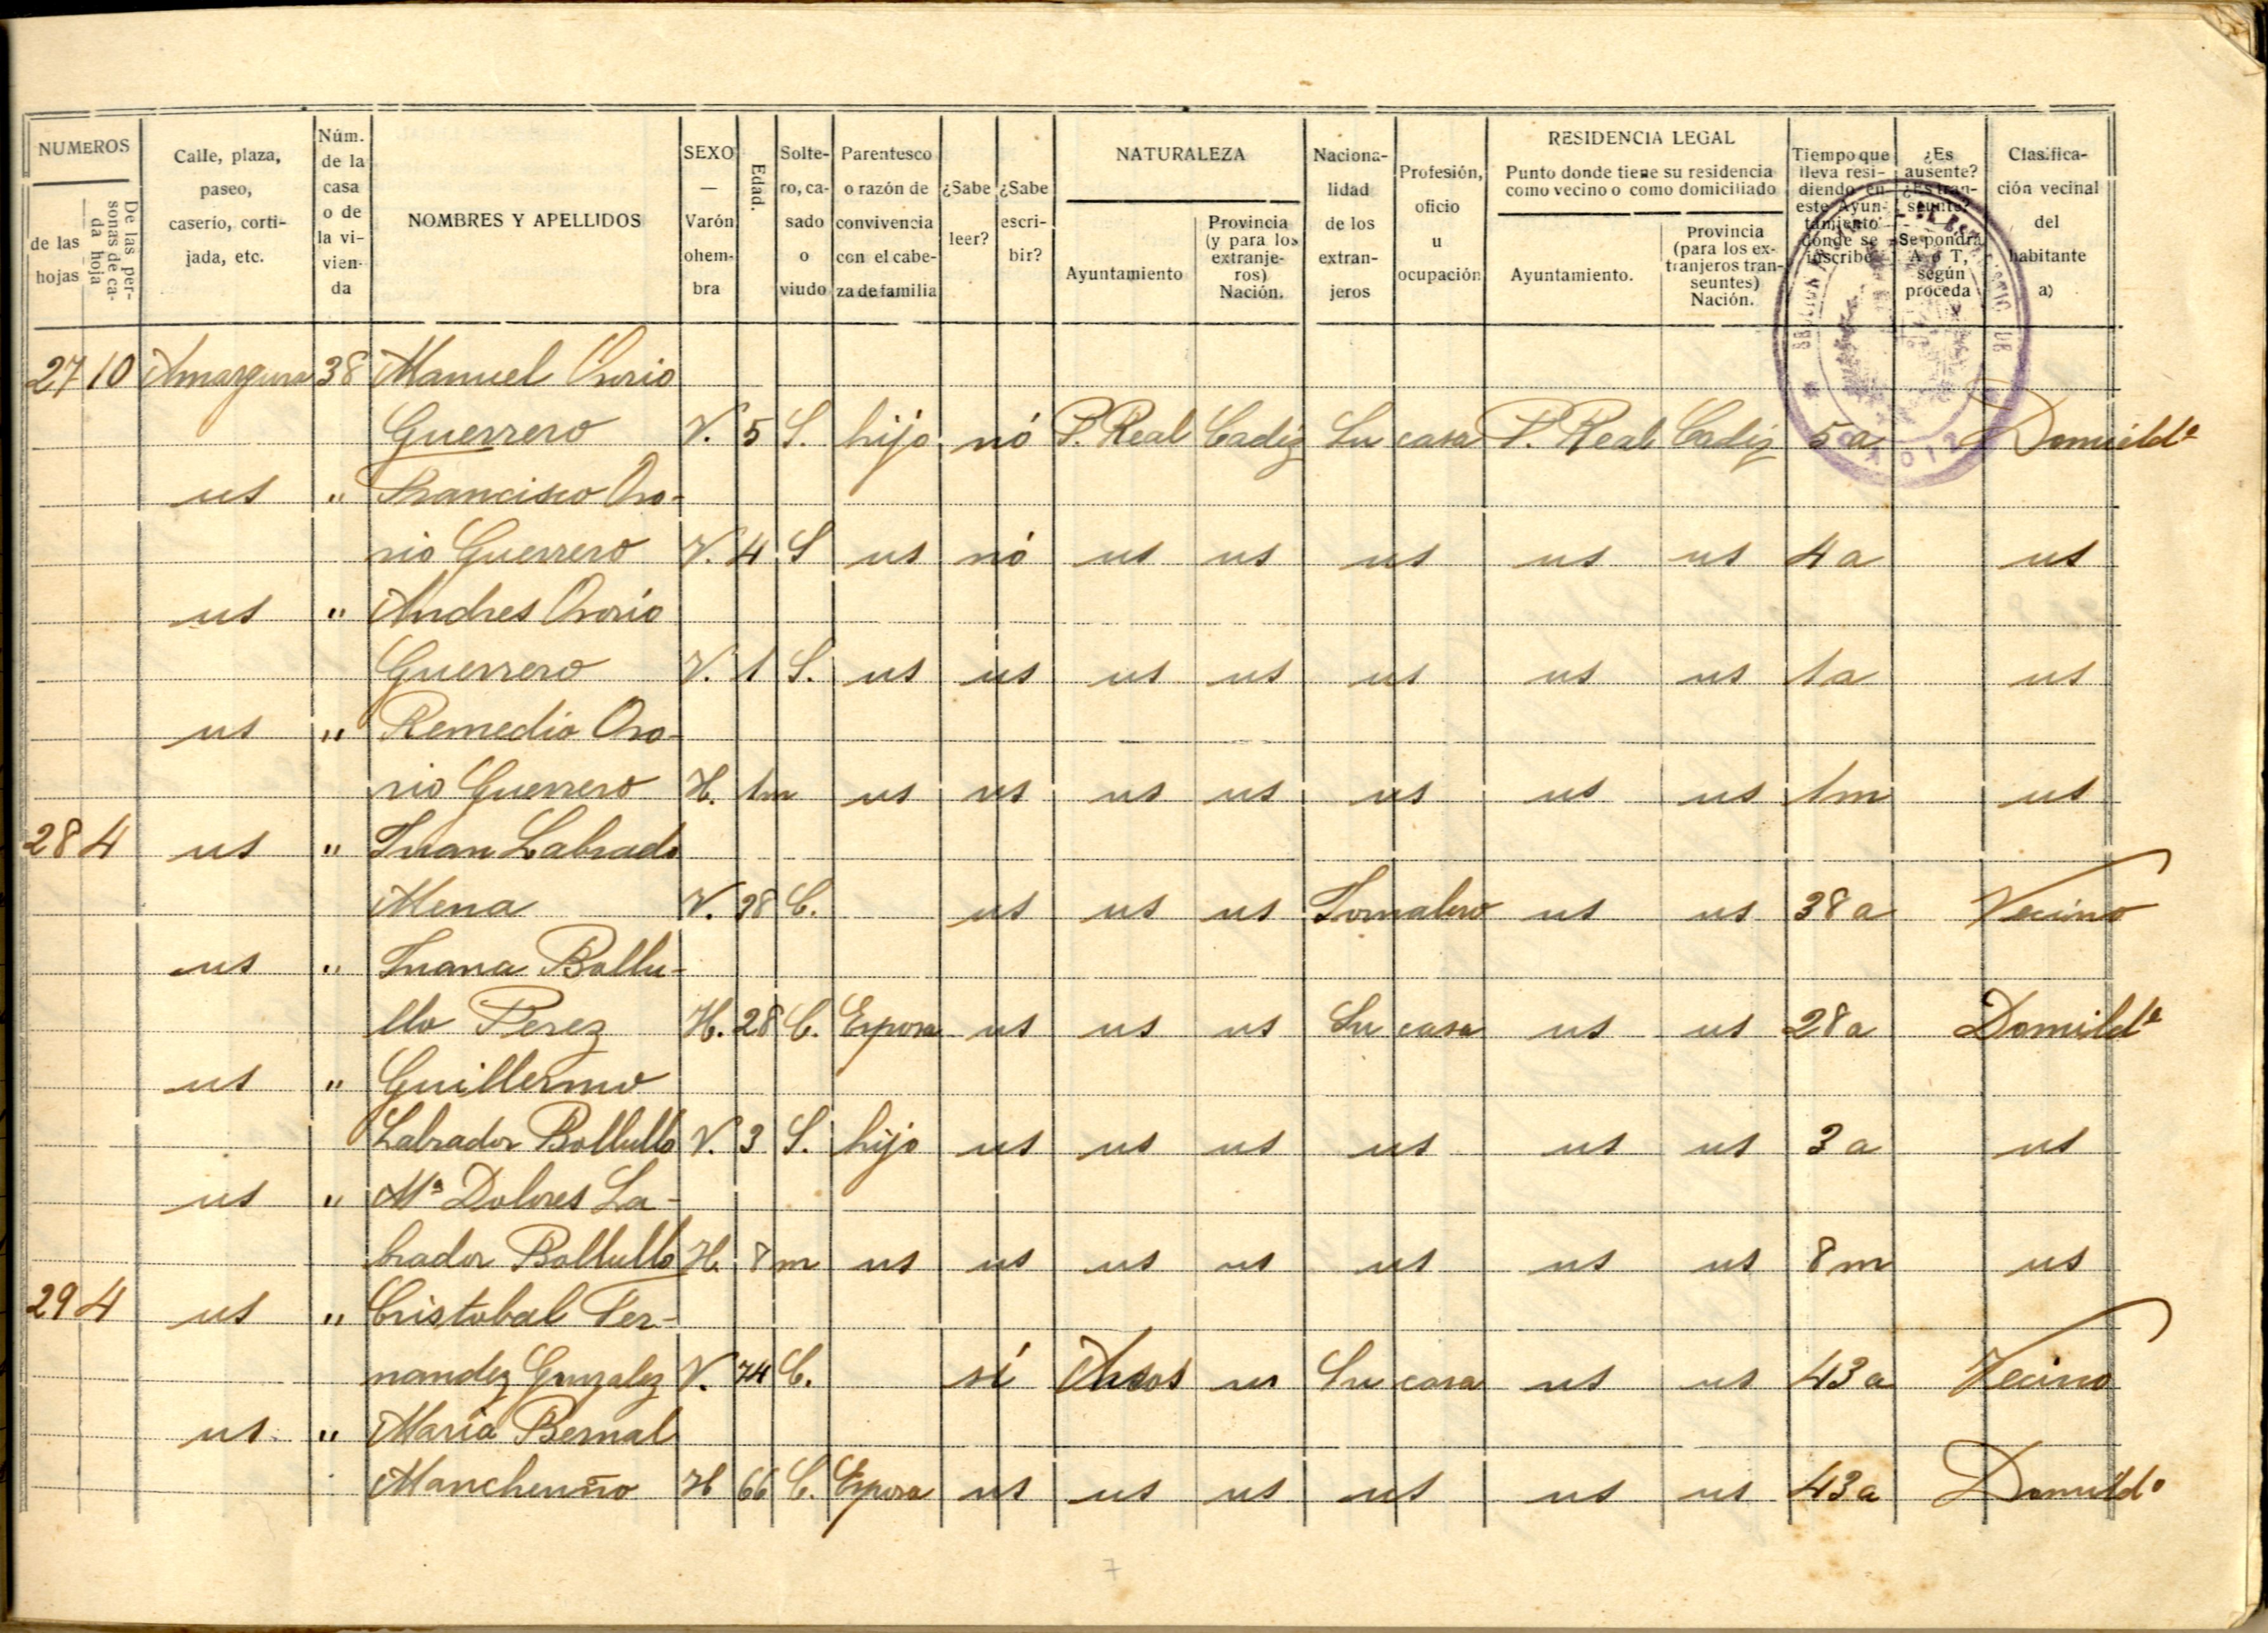 NUMEROS
de las hojas
De las personas de cada hoja
Calle, plaza, paseo, caserío, cortijada, etc.
Núm. de la casa o de la vivienda
NOMBRES Y APELLIDOS
SEXO — Varón o hembra
Edad.
Soltero, casado o viudo
Parentesco o razón de convivencia con el cabeza de familia
¿Sabe leer?
¿Sabe escribir?
NATURALEZA
Ayuntamiento
Provincia (y para los extranjeros) Nación.
Nacionalidad de los extranjeros
Profesión, oficio u ocupación
RESIDENCIA LEGAL
Punto donde tiene su residencia como vecino o como domiciliado
Ayuntamiento.
Provincia (para los extranjeros transeuntes) Nación.
Tiempo que lleva residiendo en este Ayuntamiento donde se inscribe
¿Es ausente? ¿Es transeunte? Se pondrá A o T, según proceda
Clasificación vecinal del habitante a)
27 10 Amargura 38 Manuel Osorio
Guerrero V. 5 S. hijo nó P. Real Cadiz Su casa P. Real Cadiz 5 a Domicildº
us " Francisco Oso-
rio Guerrero V. 4 S us nó us us us us us 4 a us
us " Andres Osorio
Guerrero V. 1 S. us us us us us us us 1a us
us " Remedio Oso-
rio Guerrero H. 1m us us us us us us us 1m us
28 4 us " Juan Labrado
Mena V. 38 C. us us us Jornalero us us 38 a Vecino
us " Juana Bollu-
llo Perez H. 28 C. Esposa us us us Su casa us us 28 a Domildª
us " Guillermo
Labrador Bollullo V. 3 S. hijo us us us us us us 3 a us
us " Mª Dolores La-
brador Bollullo H. 8 m us us us us us us us 8 m us
29 4 us " Cristobal Fer-
nandez Gonzalez V. 74 C. si us Su casa us us 43 a Vecino
us " Maria Bernal
Mancheño H 66 C. Esposa us us us us us us 43 a Domildº
7